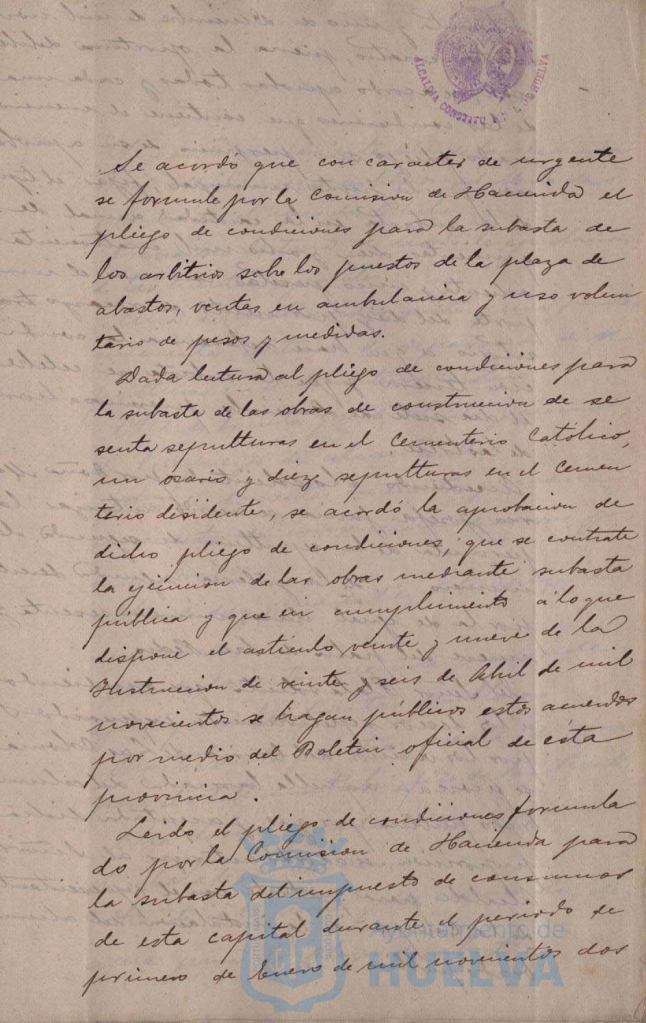 ALCALDIA CONSTITU HUELVA
Se acordo que con carácter de urgente
se formule por la Comision de Hacienda el
pliego de condiciones para la subasta de
los arbitrios sobre los puestos de la plaza de
abastos, ventas en ambulancia y uso volun
tario de pesos y medidas.
Dada lectura al pliego de condiciones para
la subasta de las obras de construccion de se
senta sepulturas en el Cementerio Católico,
un osario y diez sepulturas en el Cemen
terio disidente, se acordó la aprobacion de
dicho pliego de condiciones, que se contrate
la ejecucion de las obras mediante subasta
pública y que en cumplimiento á lo que
dispone el artículo veinte y nueve de la
Instruccion de veinte y seis de Abril de mil
novecientos se hagan públicos estos acuerdos
por medio del Boletin oficial de esta
provincia.
Leido el pliego de condiciones formula
do por la Comision de Hacienda para
la subasta del impuesto de consumos
de esta capital durante el periodo de
primero de Enero de mil novecientos dos
Ayuntamiento de
HUELVA